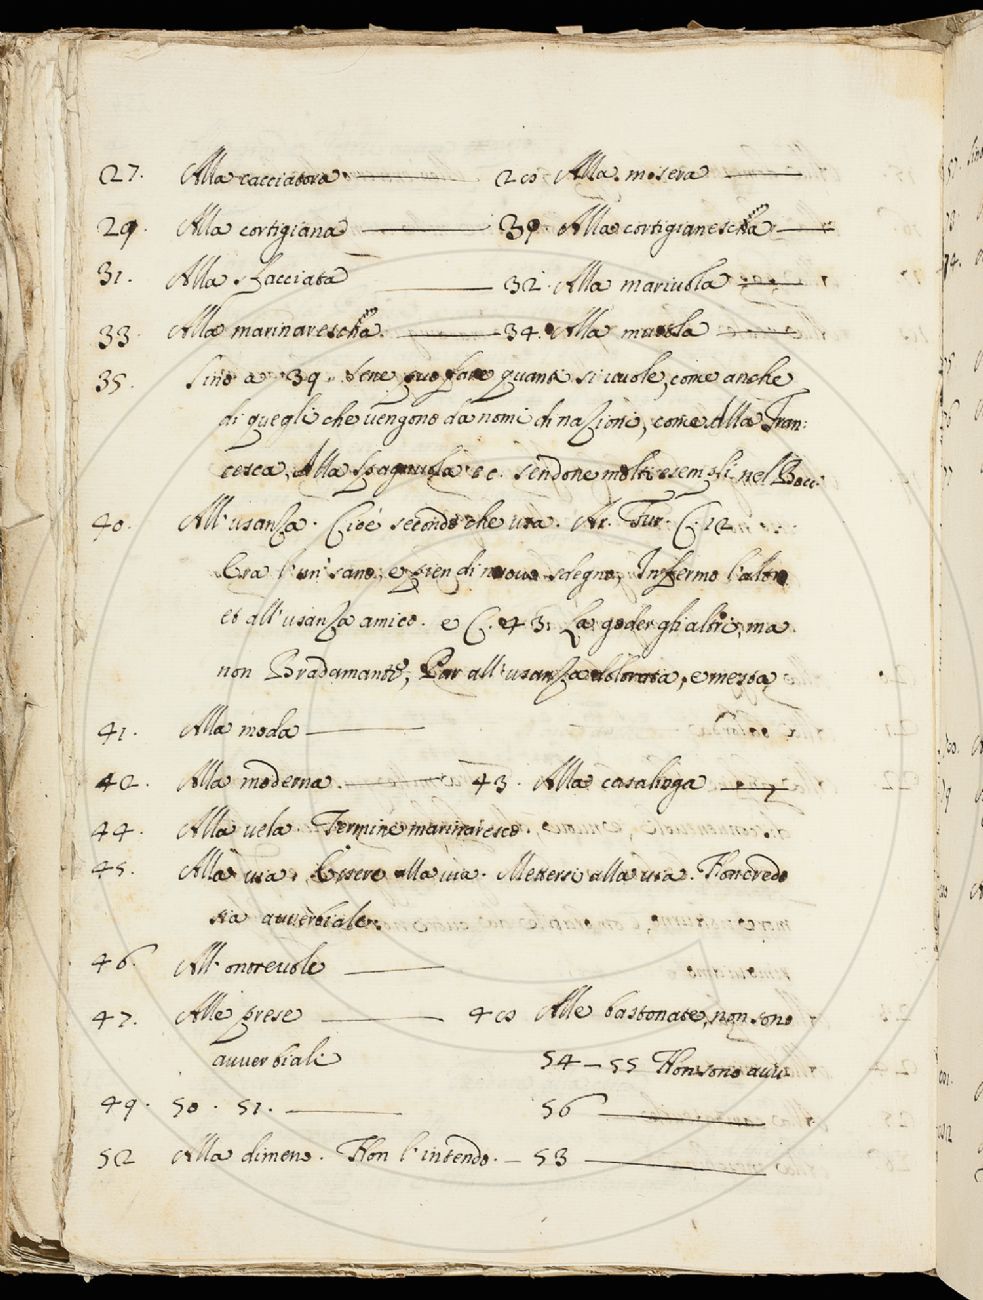 27. Alla cacciatora 28 Alla misera
29. Alla cortigiana 30. Alla cortigianescha
31. Alla sfacciata 32. Alla mariuola
33. Alla marinarescha 34. Alla
35. Sino a 39. sene puo fare quanti si vuole, come anche
di quegli che vengono da nomi di nazioni, come Alla Fran:
cesca, Alla Spagnuola ec. sendone molti esempli nel Bocc.
40. All'usanza. Cioè secondo che usa. Ar. Fur. C. 12
Era l'un sano, e pien di nuovo sdegno, Infermo l'altro
et all'usanza amico. e C. 43. La goder gli altri, ma
non Bradamante, Par all'usanza dolorosa, e mesta
41. Alla moda
42. Alla moderna. 43. Alla casalinga
44. Alla vela. Termine marinaresco.
45. Alla via. Essere alla via. Mettersi alla via. Non credo
sia avverbiale.
46. All'onorevole
47. Alle prese 48 Alle bastonate, non sono
avverbiali 54 – 55 Non sono avv.
49. 50. 51. 56
52 Alla dimeno. Non l'intendo. – 53